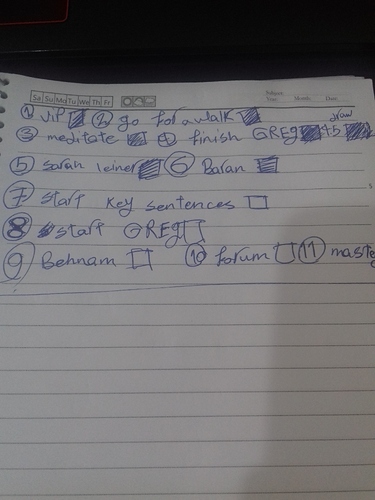 Sa Su Mo Tu We Th Fr
Subject:
Year: Month: Date:
① vip ② go for a walk
draw
③ meditate ④ finish GREG +5
⑤ sarah leiner ⑥ Baran
⑦ start key sentences
⑧ start GREG
⑨ Behnam ⑩ forum ⑪ maste